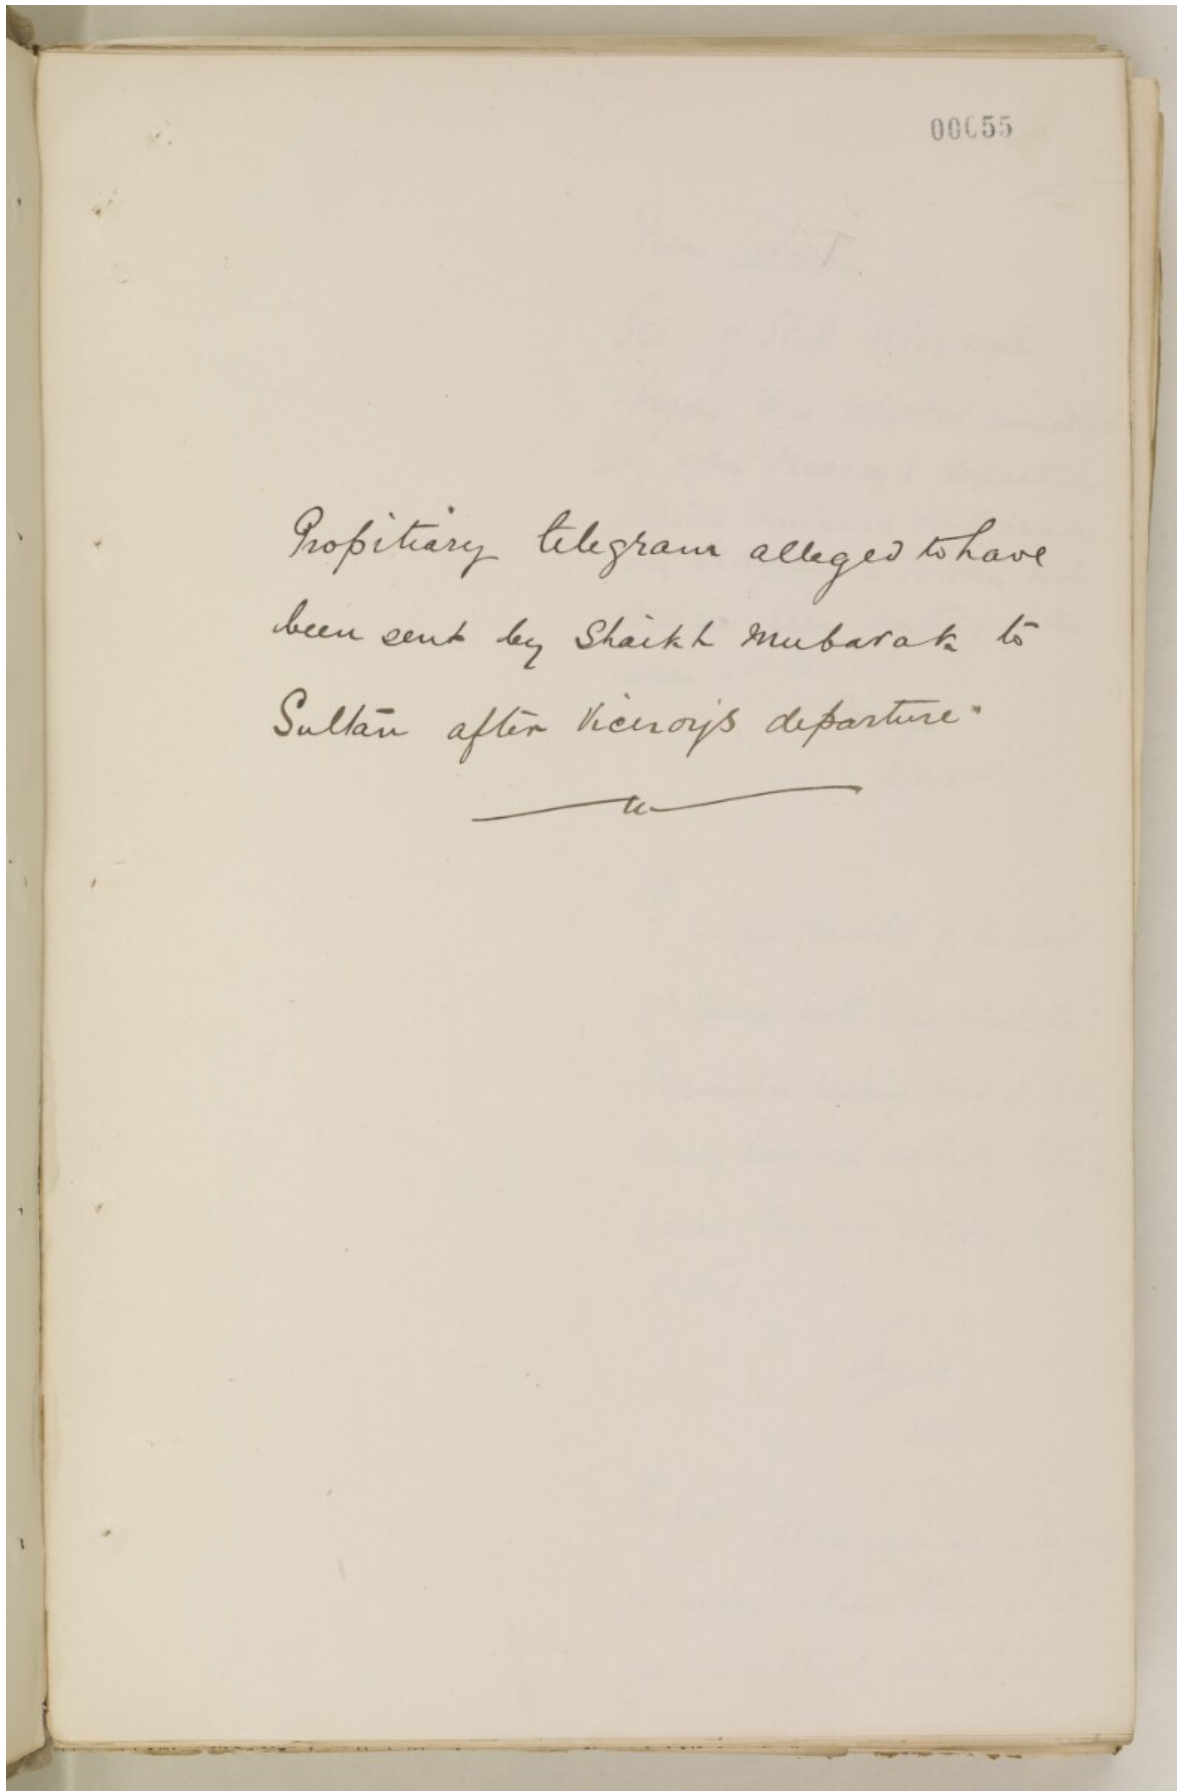 00055
Propitiary telegram alleged to have
been sent by Shaikh Mubarak to
Sultan after Viceroy's departure.